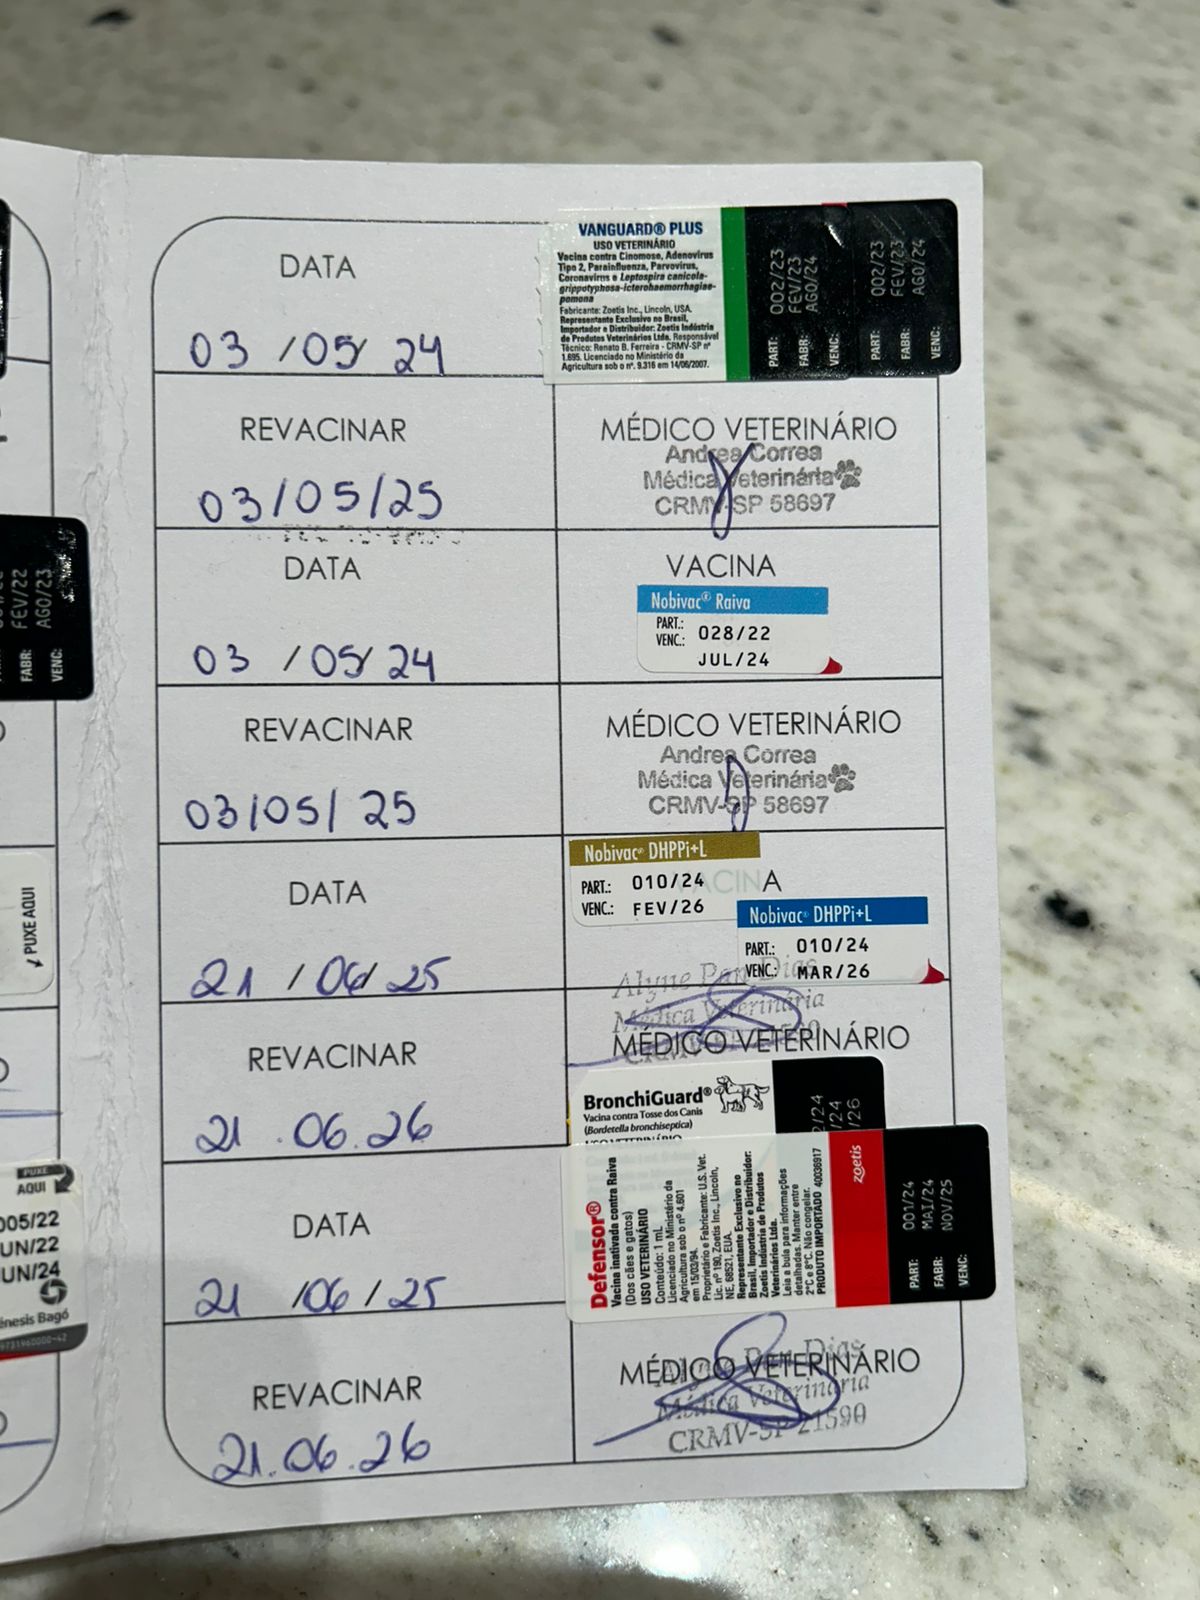 DATA
03 /05/ 24
VANGUARD® PLUS
USO VETERINÁRIO
Vacina contra Cinomose, Adenovirus
Tipo 2, Parainfluenza, Parvovirus,
Coronavirus e Leptospira canicola-
grippotyphosa-icterohaemorrhagiae-
pomona
Fabricante: Zoetis Inc., Lincoln, USA.
Representante Exclusivo no Brasil,
Importador e Distribuidor: Zoetis Indústria
de Produtos Veterinários Ltda. Responsável
Técnico: Renato B. Ferreira - CRMV-SP nº
1.695. Licenciado no Ministério da
Agricultura sob o nº. 9.316 em 14/06/2007.
PART: 002/23
FABR: FEV/23
VENC: AGO/24
PART: 002/23
FABR: FEV/23
VENC: AGO/24
REVACINAR
03/05/25
MÉDICO VETERINÁRIO
Andrea Correa
Médica Veterinária
CRMV-SP 58697
DATA
03 /05/ 24
VACINA
Nobivac® Raiva
PART.: 028/22
VENC.: JUL/24
REVACINAR
03/05/ 25
MÉDICO VETERINÁRIO
Andrea Correa
Médica Veterinária
CRMV-SP 58697
DATA
21 / 06/ 25
Nobivac® DHPPi+L
PART.: 010/24
VENC.: FEV/26
VACINA
Nobivac® DHPPi+L
PART.: 010/24
VENC.: MAR/26
Alyne Pan Dias
Médica Veterinária
REVACINAR
21 . 06. 26
MÉDICO VETERINÁRIO
BronchiGuard®
Vacina contra Tosse dos Canis
(Bordetella bronchiseptica)
USO VETERINÁRIO
2/24
/24
/26
DATA
21 /06 / 25
Defensor®
Vacina inativada contra Raiva
(Dos cães e gatos)
USO VETERINÁRIO
Conteúdo: 1 mL
Licenciado no Ministério da
Agricultura sob o nº 4.601
em 15/03/94.
Proprietário e Fabricante: U.S. Vet.
Lic. nº 190, Zoetis Inc., Lincoln,
NE, 68521, EUA.
Representante Exclusivo no
Brasil, Importador e Distribuidor:
Zoetis Indústria de Produtos
Veterinários Ltda.
Leia a bula para informações
detalhadas. Manter entre
2°C e 8°C. Não congelar.
PRODUTO IMPORTADO 40036917
zoetis
PART: 001/24
FABR: MAI/24
VENC: NOV/25
REVACINAR
21.06.26
MÉDICO VETERINÁRIO
Alyne Pan Dias
Médica Veterinária
CRMV-SP 21590
FEV/22
AGO/23
FABR:
VENC:
PUXE AQUI
PUXE
AQUI
005/22
UN/22
UN/24
énesis Bagó